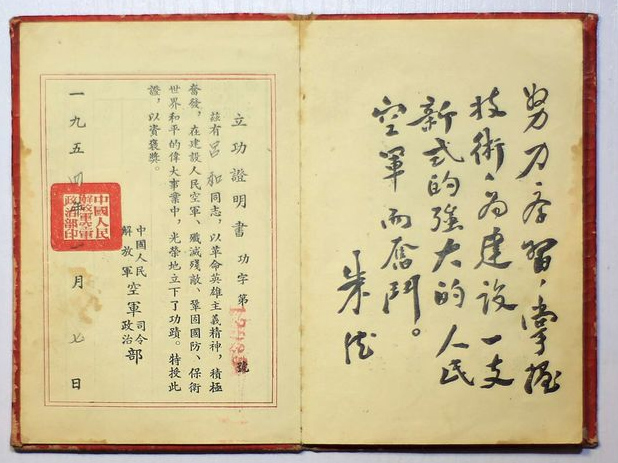 努力学習，掌握
技術，为建設一支
新式的强大的人民
空軍而奮鬥。
朱德
立功證明書 功字第 號
茲有呂和同志，以革命英雄主義精神，積極
奮發，在建設人民空軍、殲滅殘敵、鞏固國防、保衛
世界和平的偉大事業中，光榮地立下了功蹟。特授此
證，以資褒獎。
中國人民
解放軍
空軍
司令
政治
部
中國人民
解放軍空軍
政治部印
一九五四年一月七日